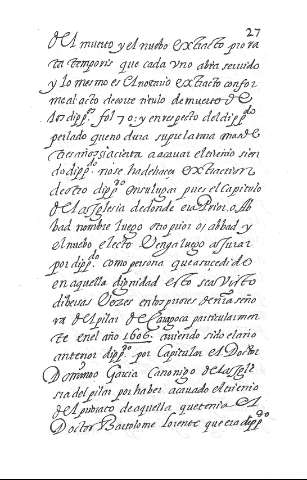 27
del muerto y el nuebo extracto pro ra
ta temporis que cada vno abra servido
y lo mesmo es el notario extracto confor
me al acto de corte titulo de muerte de
los dipp.os fol 70: y en respecto del dipp.do
perlado que no dura su prelatura mas de
tres años si acierta a acauar el trienio sien
do dipp.do no se ha de hacer extraction
de otro dipp.do en su lugar pues el capitulo
de la Iglesia de donde era Prior o Ab
bad nombre luego otro prior o abbad y
el nuebo electo venga luego a jurar
por dipp.do como persona que a sucedido
en aquella dignidad esto se a visto
diuersas vezes en los priores de nra seño
ra del pilar de Çaragoça particularmen
te en el año 1606. auiendo sido el año
anterior dipp.do por Capitular el Doctor
Domingo Garcia Canonigo de la Igle
sia del pilar por haber acauado el trienio
del priorato de aquella que tenia el
Doctor Bartolome Lorente que era dipp.do